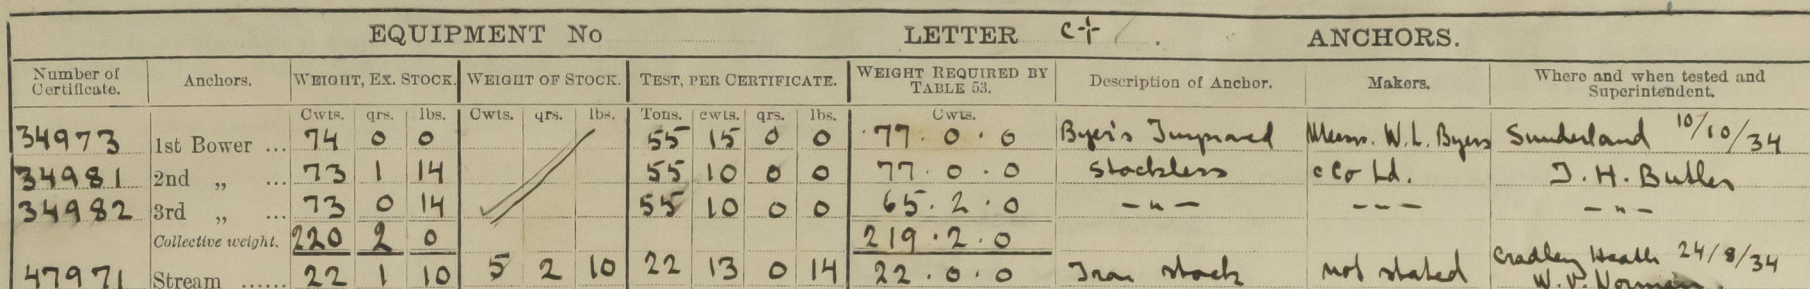 EQUIPMENT No LETTER c+ ANCHORS.
Number of Certificate. Anchors. WEIGHT, EX. STOCK. WEIGHT OF STOCK. TEST, PER CERTIFICATE. WEIGHT REQUIRED BY TABLE 53. Description of Anchor. Makers. Where and when tested and Superintendent.
Cwts. qrs. lbs. Cwts. qrs. lbs. Tons. cwts. qrs. lbs. Cwts.
34973 1st Bower ... 74 0 0 55 15 0 0 77.0.0 Byer's Improved Messrs. W.L. Byers Sunderland 10/10/34
34981 2nd „ ... 73 1 14 55 10 0 0 77.0.0 Stockless & Co Ld. J. H. Butler
34982 3rd „ ... 73 0 14 55 10 0 0 65.2.0 -"- --- -"-
Collective weight. 220 2 0 219.2.0
47971 Stream ...... 22 1 10 5 2 10 22 13 0 14 22.0.0 Iron stock not stated Cradley Heath 24/8/34
W. V. Norman.